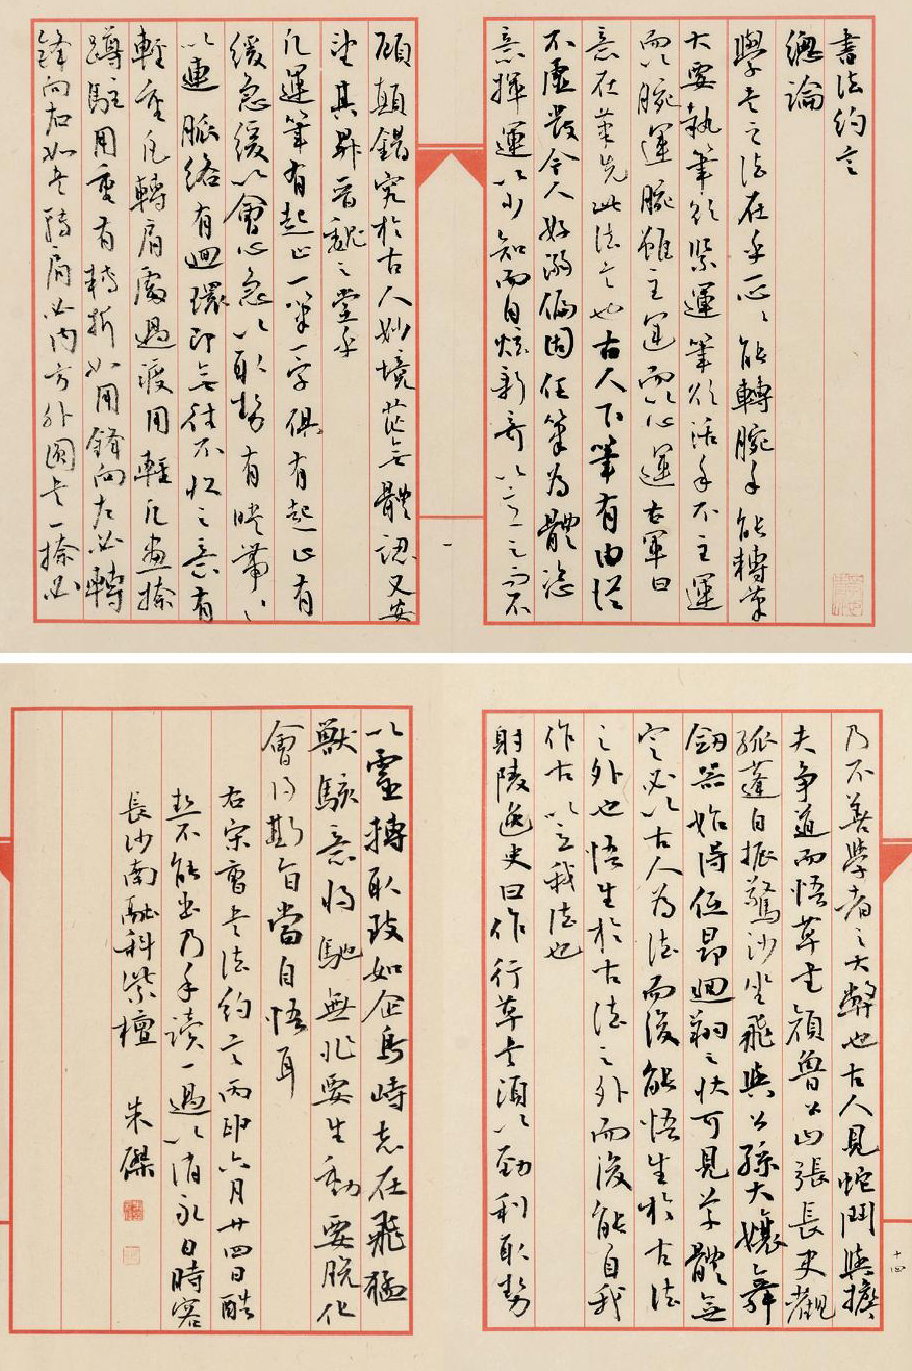 書法約言
總論
學書之法在乎一心心能轉腕手能轉筆
大要執筆欲緊運筆欲活手不主運
而以腕運腕雖主運而以心運右軍曰
意在筆先此法言也古人下筆有由從
不虛發今人好溺偏固任筆為體恣
意揮運以少知而自炫新奇以意足之而不
顧顛錯究於古人妙境茫無體認又安
望其昇晉魏之堂乎
凡運筆有起止一筆一字俱有起止有
緩急緩以會心急以取勢有映帶映帶
以連脈絡有迴環即無往不收之意有
輕重凡轉肩處過渡用輕凡畫捺
蹲駐用重有轉折如用鋒向左必轉
鋒向右如書轉肩必內方外圓書一捺必
乃不善學者之大弊也古人見蛇鬥與擔
夫爭道而悟草書顏魯公曰張長史觀
孤蓬自振驚沙坐飛與公孫大孃舞
劍器始得低昂迴翔之狀可見草體無
定必以古人為法而後能悟生於古法
之外也悟生於古法之外而後能自我
作古以立我法也
射陵逸史曰作行草書須以勁利取勢
以靈轉取致如企鳥峙志在飛猛
獸駭意將馳無非要生動要脫化
會得斯旨當自悟耳
右宋曹書法約言丙申六月廿四日酷
熱不能出乃手讀一過以消永日時客
長沙南
朱
十四
一